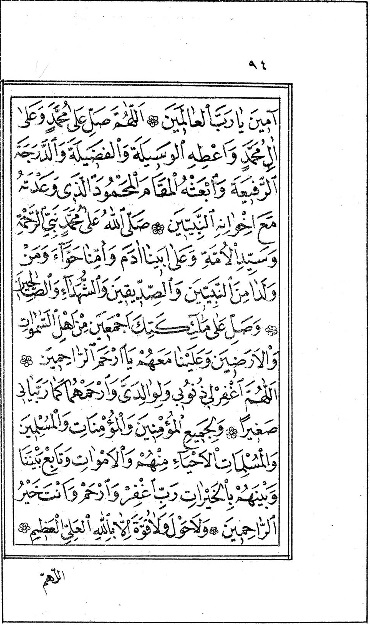 ٩٤
آمِينَ يَا رَبَّ الْعَالَمِينَ ۞ اَللّٰهُمَّ صَلِّ عَلٰى مُحَمَّدٍ وَعَلٰى
اٰلِ مُحَمَّدٍ وَاَعْطِهِ الْوَسِيلَةَ وَالْفَضِيلَةَ وَالدَّرَجَةَ
الرَّفِيعَةَ وَابْعَثْهُ الْمَقَامَ الْمَحْمُودَ الَّذِى وَعَدْتَهُ
مَعَ اِخْوَانِهِ النَّبِيِّينَ ۞ صَلَّى اللّٰهُ عَلٰى مُحَمَّدٍ نَبِيِّ الرَّحْمَةِ
وَسَيِّدِ الْاُمَّةِ وَعَلٰى اَبِينَا اٰدَمَ وَاُمِّنَا حَوَّاءَ وَمَنْ
وَلَدَا مِنَ النَّبِيِّينَ وَالصِّدِّيقِينَ وَالشُّهَدَاءِ وَالصَّالِحِينَ
۞ وَصَلِّ عَلٰى مَلٰئِكَتِكَ اَجْمَعِينَ مِنْ اَهْلِ السَّمٰوَاتِ
وَالْاَرَضِينَ وَعَلَيْنَا مَعَهُمْ يَا اَرْحَمَ الرَّاحِمِينَ ۞
اَللّٰهُمَّ اغْفِرْ لِى ذُنُوبِى وَلِوَالِدَيَّ وَارْحَمْهُمَا كَمَا رَبَّيَانِى
صَغِيرًا ۞ وَلِجَمِيعِ الْمُؤْمِنِينَ وَالْمُؤْمِنَاتِ وَالْمُسْلِمِينَ
وَالْمُسْلِمَاتِ الْاَحْيَاءِ مِنْهُمْ وَالْاَمْوَاتِ وَتَابِعْ بَيْنَنَا
وَبَيْنَهُمْ بِالْخَيْرَاتِ رَبِّ اغْفِرْ وَارْحَمْ وَاَنْتَ خَيْرُ
الرَّاحِمِينَ ۞ وَلَا حَوْلَ وَلَا قُوَّةَ اِلَّا بِاللّٰهِ الْعَلِيِّ الْعَظِيمِ ۞
اللّهمّ